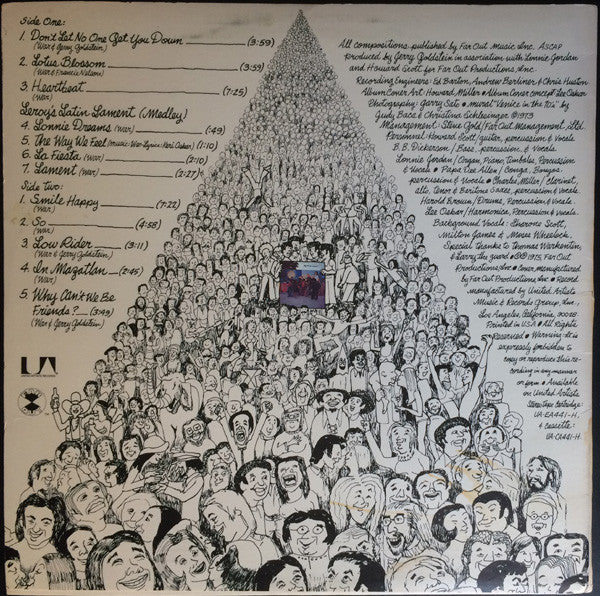 Side One:
1. Don't Let No One Get You Down (3:59)
(War & Jerry Goldstein)
2. Lotus Blossom (3:59)
(War & Francis Nelson)
3. Heartbeat (7:25)
(War)
Leroy's Latin Lament (Medley)
4. Lonnie Dreams (War) (:49)
5. The Way We Feel (Music: War-Lyrics: Keri Oskar) (1:10)
6. La Fiesta (War) (2:10)
7. Lament (War) (2:27)
Side Two:
1. Smile Happy (7:22)
(War)
2. So (4:58)
(War)
3. Low Rider (3:11)
(War & Jerry Goldstein)
4. In Mazatlan (2:45)
(War)
5. Why Can't We Be
Friends? (3:49)
(War & Jerry Goldstein)
UA
All compositions published by Far Out Music, Inc. ASCAP
Produced by Jerry Goldstein in association with Lonnie Jordan
and Howard Scott for Far Out Productions, Inc.
Recording Engineers: Ed Barton, Andrew Berliner & Chris Huston
Album Cover Art: Howard Miller • Album Cover concept Lee Oskar
Photography: Gary Sato • mural "Venice in the 70's" by
Judy Baca & Christina Schlesinger © 1973
Management: Steve Gold/Far Out Management, Ltd.
Personnel: Howard Scott/guitar, percussion & Vocals
B.B. Dickerson/Bass, percussion, & Vocals
Lonnie Jordan/Organ, Piano, Timbales, Percussion
& Vocals • Papa Dee Allen/Conga, Bongos,
percussion & Vocals • Charles Miller/Clarinet,
alto, Tenor & Baritone Saxes, percussion & Vocals
Harold Brown/Drums, Percussion & Vocals
Lee Oskar/Harmonica, Percussion & Vocals
Background Vocals: Scott,
Milton James & Moses Wheelock
Special thanks to Thomas
& Larry the guard • ©℗ 1975, Far Out
Productions, Inc • Cover manufactured
by Far Out Productions, Inc. • Record
manufactured by United Artists
Music & Records Group, Inc.,
Los Angeles, California, 90028
Printed in USA • All Rights
Reserved • Warning: It is
expressly forbidden to
copy or reproduce this re-
cording in any manner
or form • Available
on United Artists
Stereo Tape Cartridge:
UA-EA441-H
& Cassette:
UA-CA441-H